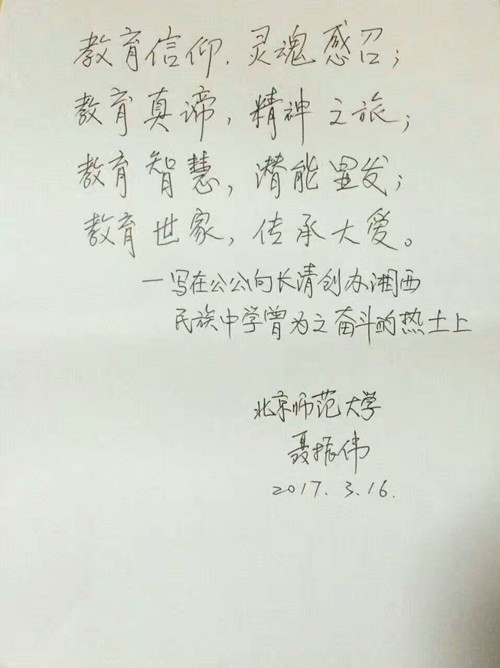 教育信仰,灵魂感召;
教育真谛,精神之旅;
教育智慧,潜能量发;
教育世家,传承大爱。
—写在公公向长清创办湘西
民族中学曾为之奋斗的热土上
北京师范大学
聂振伟
2017.3.16.